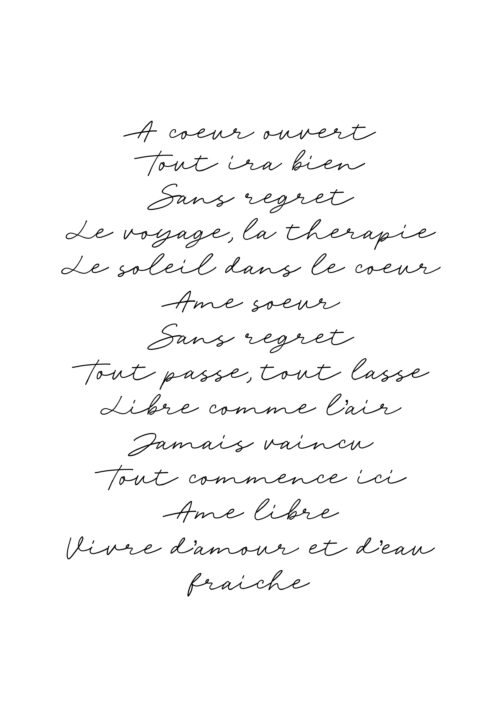 A coeur ouvert
Tout ira bien
Sans regret
Le voyage, la therapie
Le soleil dans le coeur
Ame soeur
Sans regret
Tout passe, tout lasse
Libre comme l'air
Jamais vaincu
Tout commence ici
Ame libre
Vivre d'amour et d'eau
fraiche